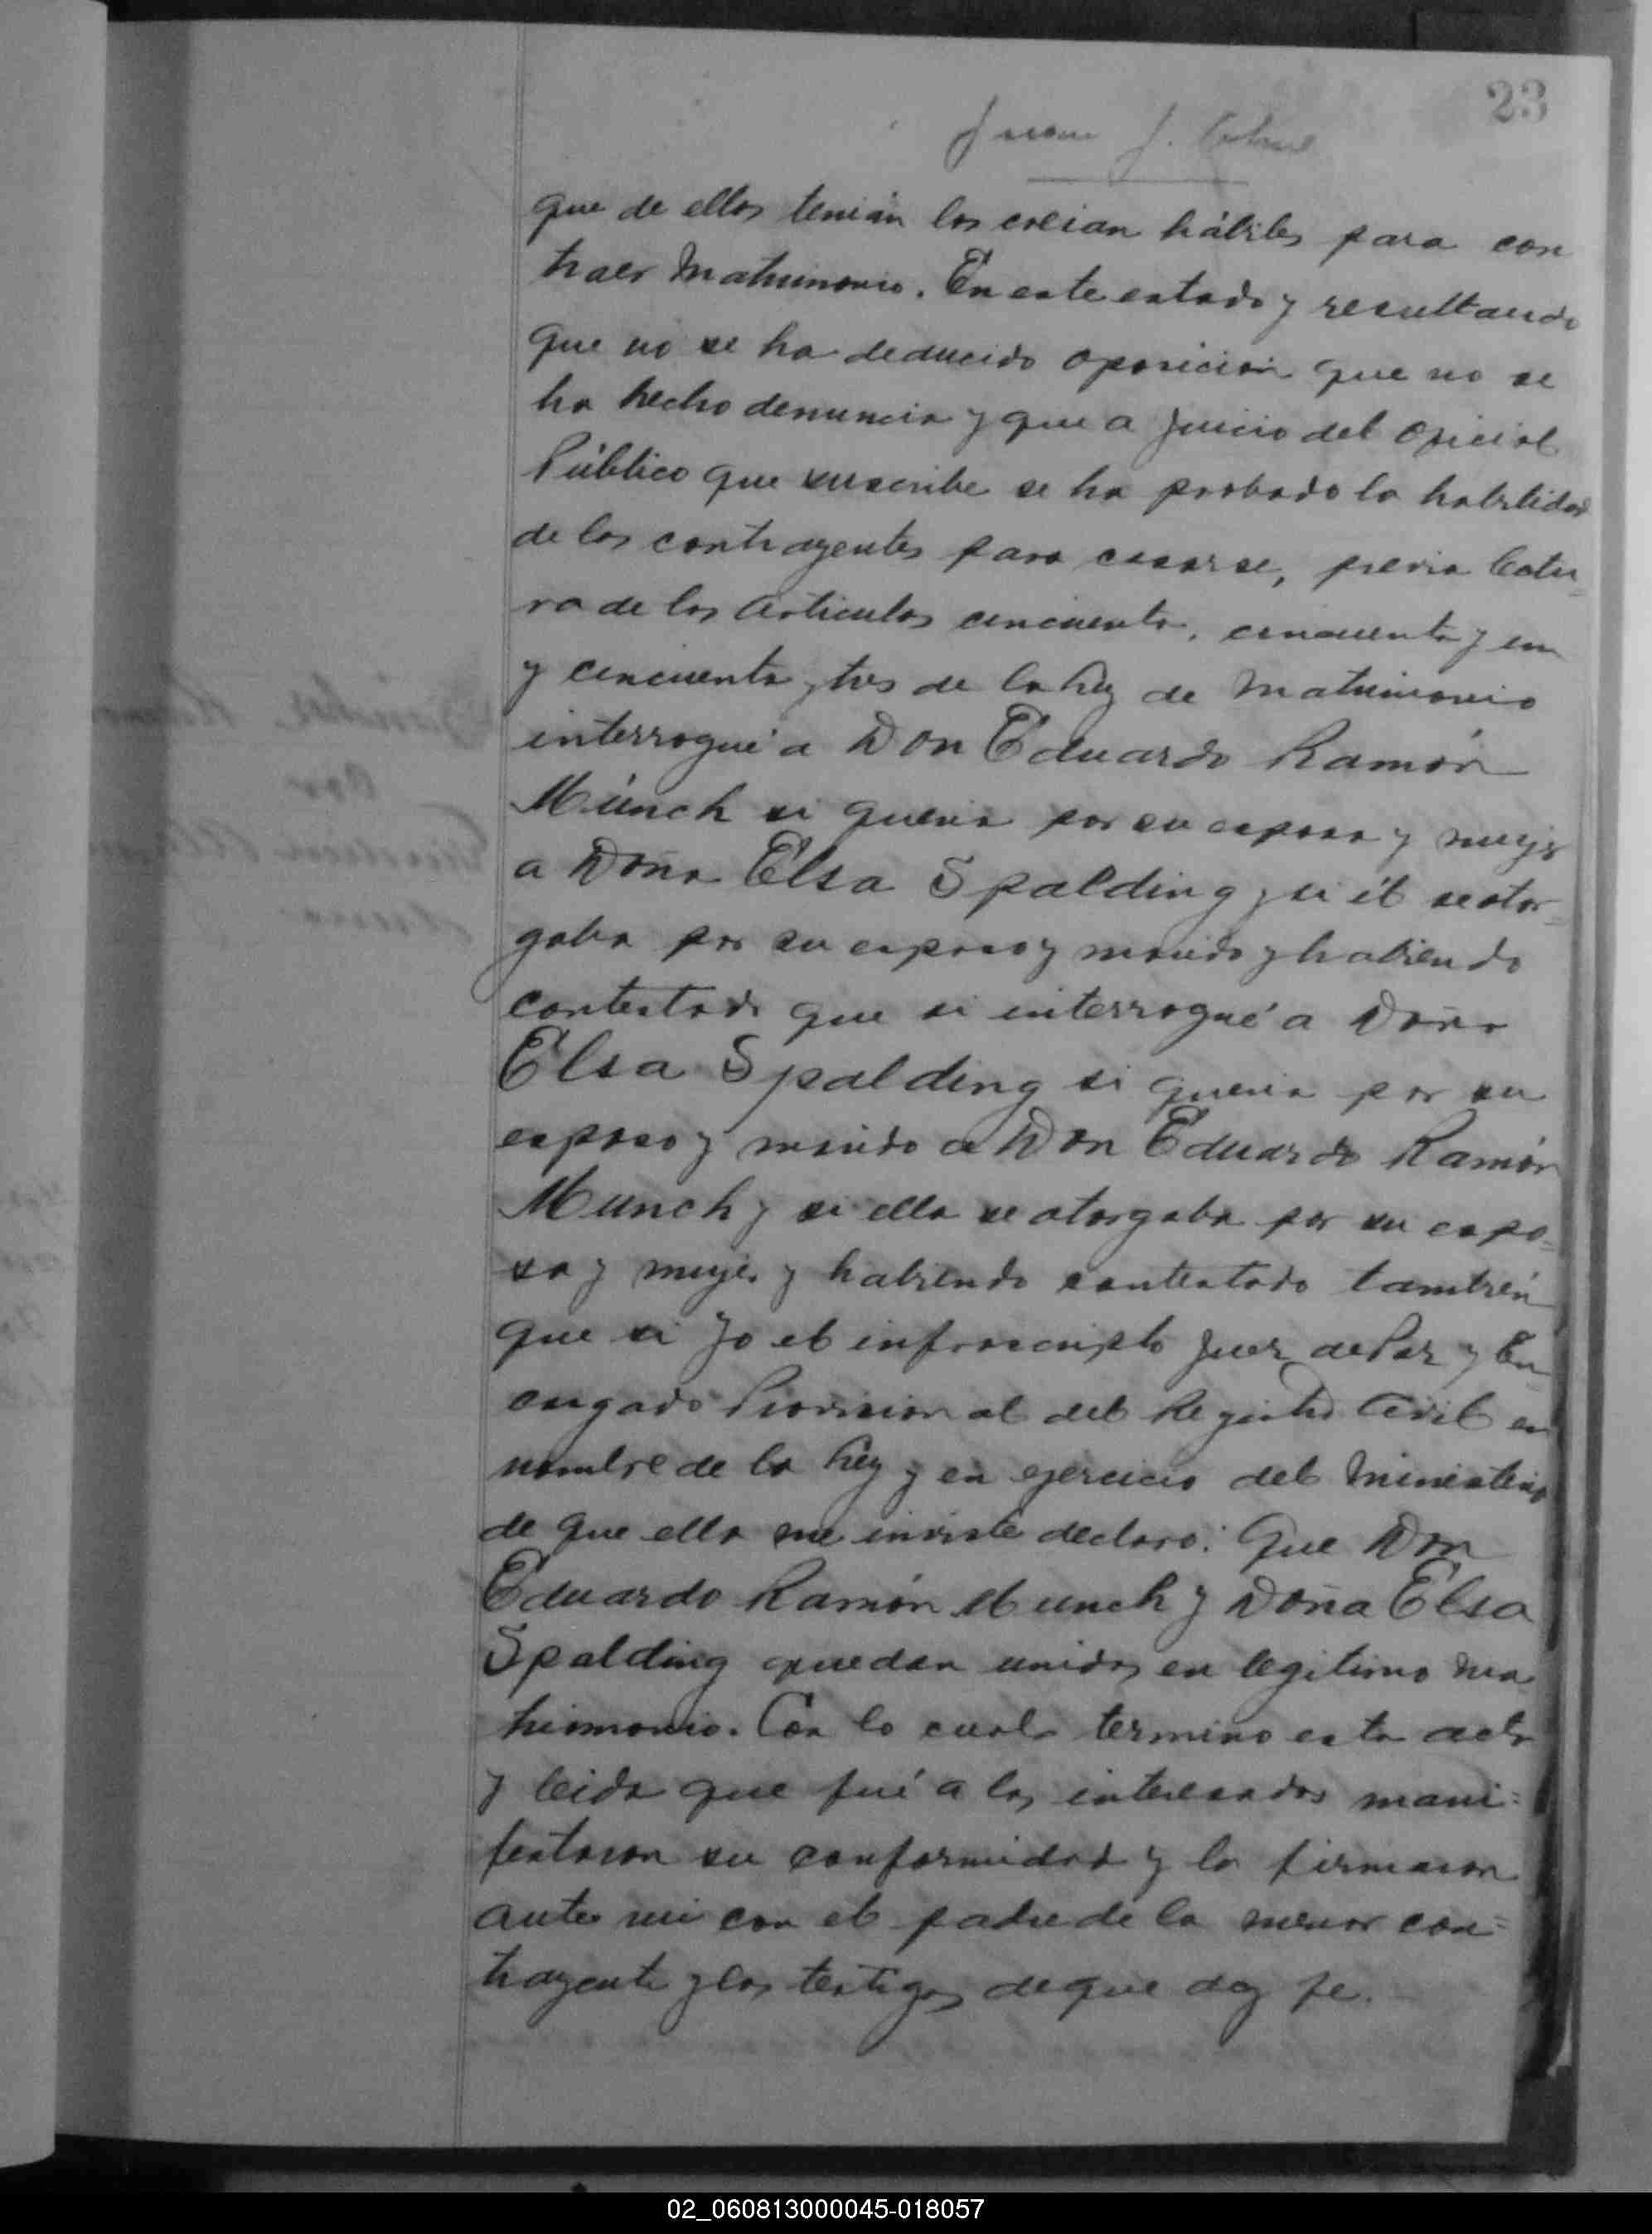 23
Juan J.
que de ellos tenían los creian hábiles para con
traer Matrimonio. En este estado y resultando
que no se ha deducido oposición que no se
ha hecho denuncia y que a juicio del Oficial
Público que suscribe se ha probado la habilidad
de los contrayentes para casarse, previa lectu=
ra de los Articulos cincuenta, cincuenta y un
y cincuenta y tres de la Ley de Matrimonio
interrogué a Don Eduardo Ramón
Múnch si queria por su esposa y mujer
a Doña Elsa Spalding y si él se otor=
gaba por su esposo y marido y habiendo
contestado que si interrogué a Doña
Elsa Spalding si queria por su
esposo y marido a Don Eduardo Ramón
Munch y si ella se otorgaba por su espo=
sa y mujer y habiendo contestado también
que si Yo el infrascripto Juez de Paz y En
cargado Provisional del Registro Civil en
nombre de la Ley y en ejercicio del Ministerio
de que ella me inviste declaro: Que Don
Eduardo Ramón Munch y Doña Elsa
Spalding quedan unidos en legitimo Ma
trimonio. Con lo cual termino esta acta
y leida que fué a los interesados mani=
festaron su conformidad y la firmaron
ante mi con el padre de la menor con=
trayente y los testigos de que doy fe.
02_060813000045-018057